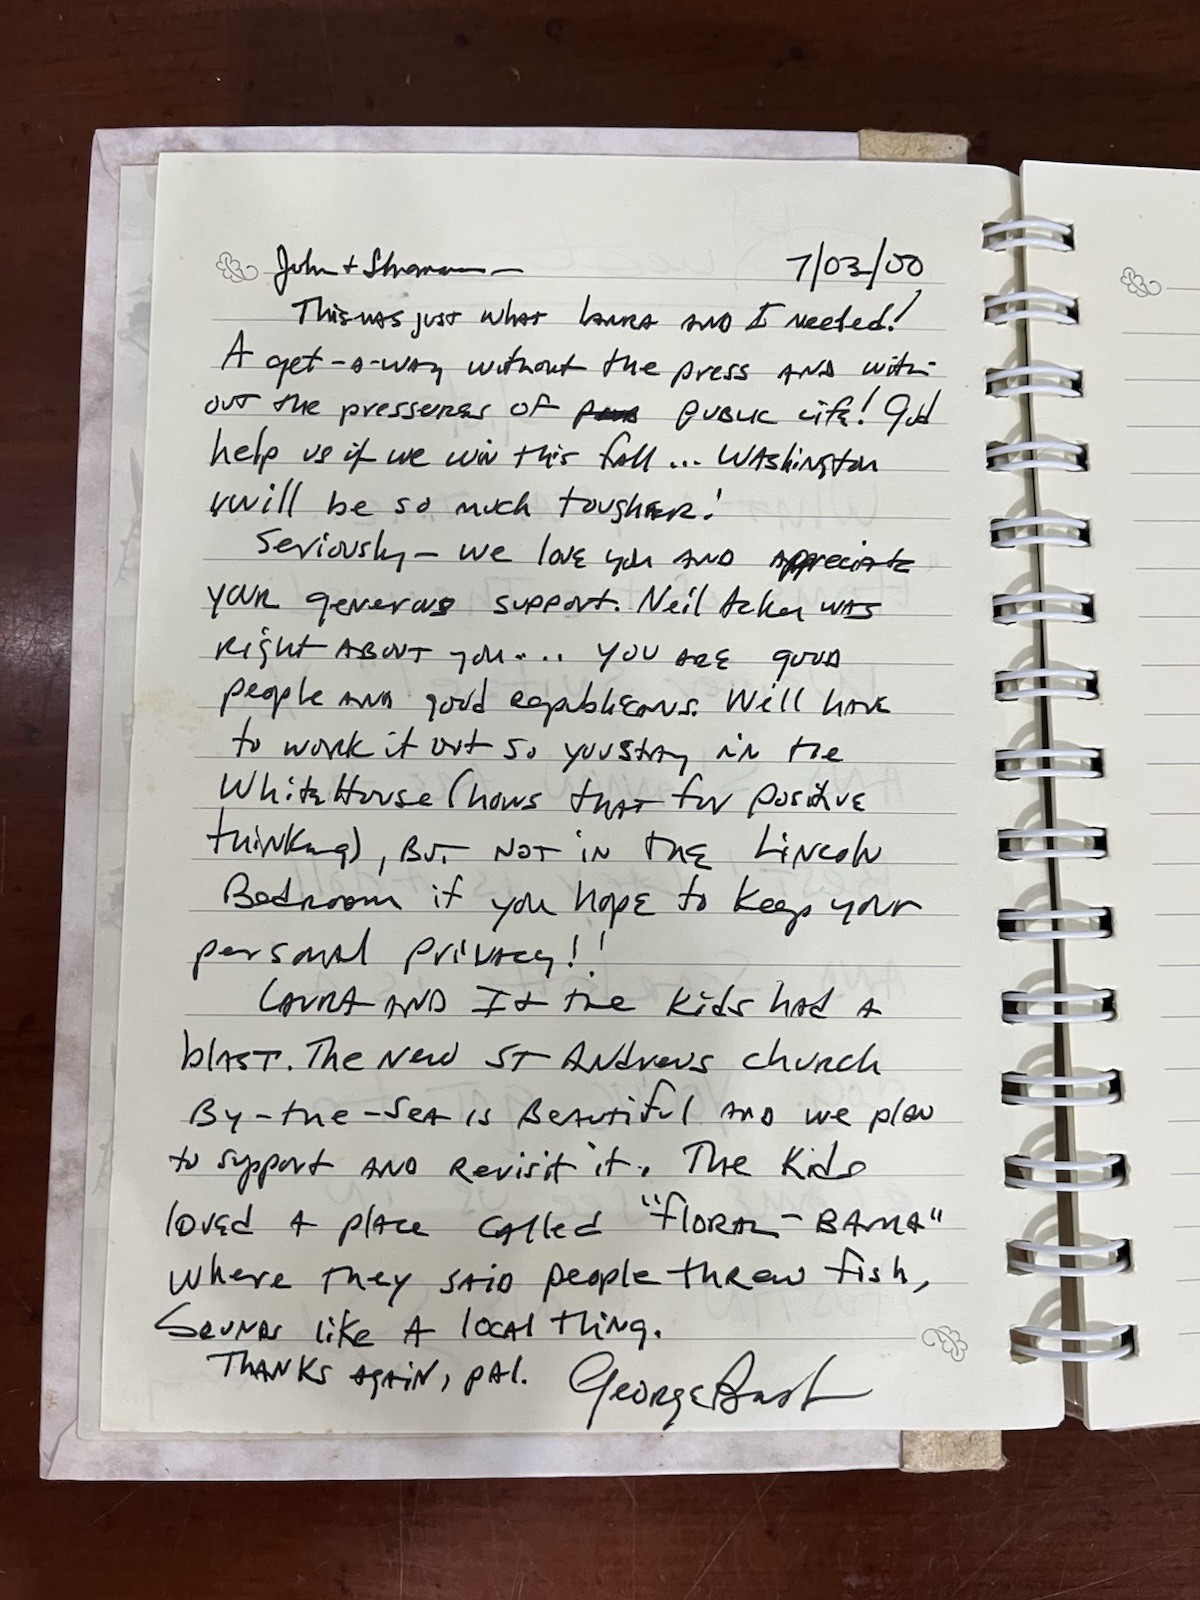 John + Shannon — 7/03/00
This was just what Laura and I needed!
A get-a-way without the press and with-
out the presseres of public life! God
help us if we win this fall... Washington
will be so much tougher!
Seriously — we love you and appreciate
your generous support. Neil Acker was
right about you.... you are good
people and good republicans. We'll have
to work it out so you stay in the
White House (hows that for positive
thinking), but not in the Lincoln
Bedroom if you hope to keep your
personal privacy!!
Laura and I + the kids had a
blast. The new St Andrews church
By-the-Sea is beautiful and we plan
to support and revisit it. The kids
loved a place called "Floral-Bama"
where they said people threw fish,
Sounds like a local thing.
Thanks again, pal. George Bush